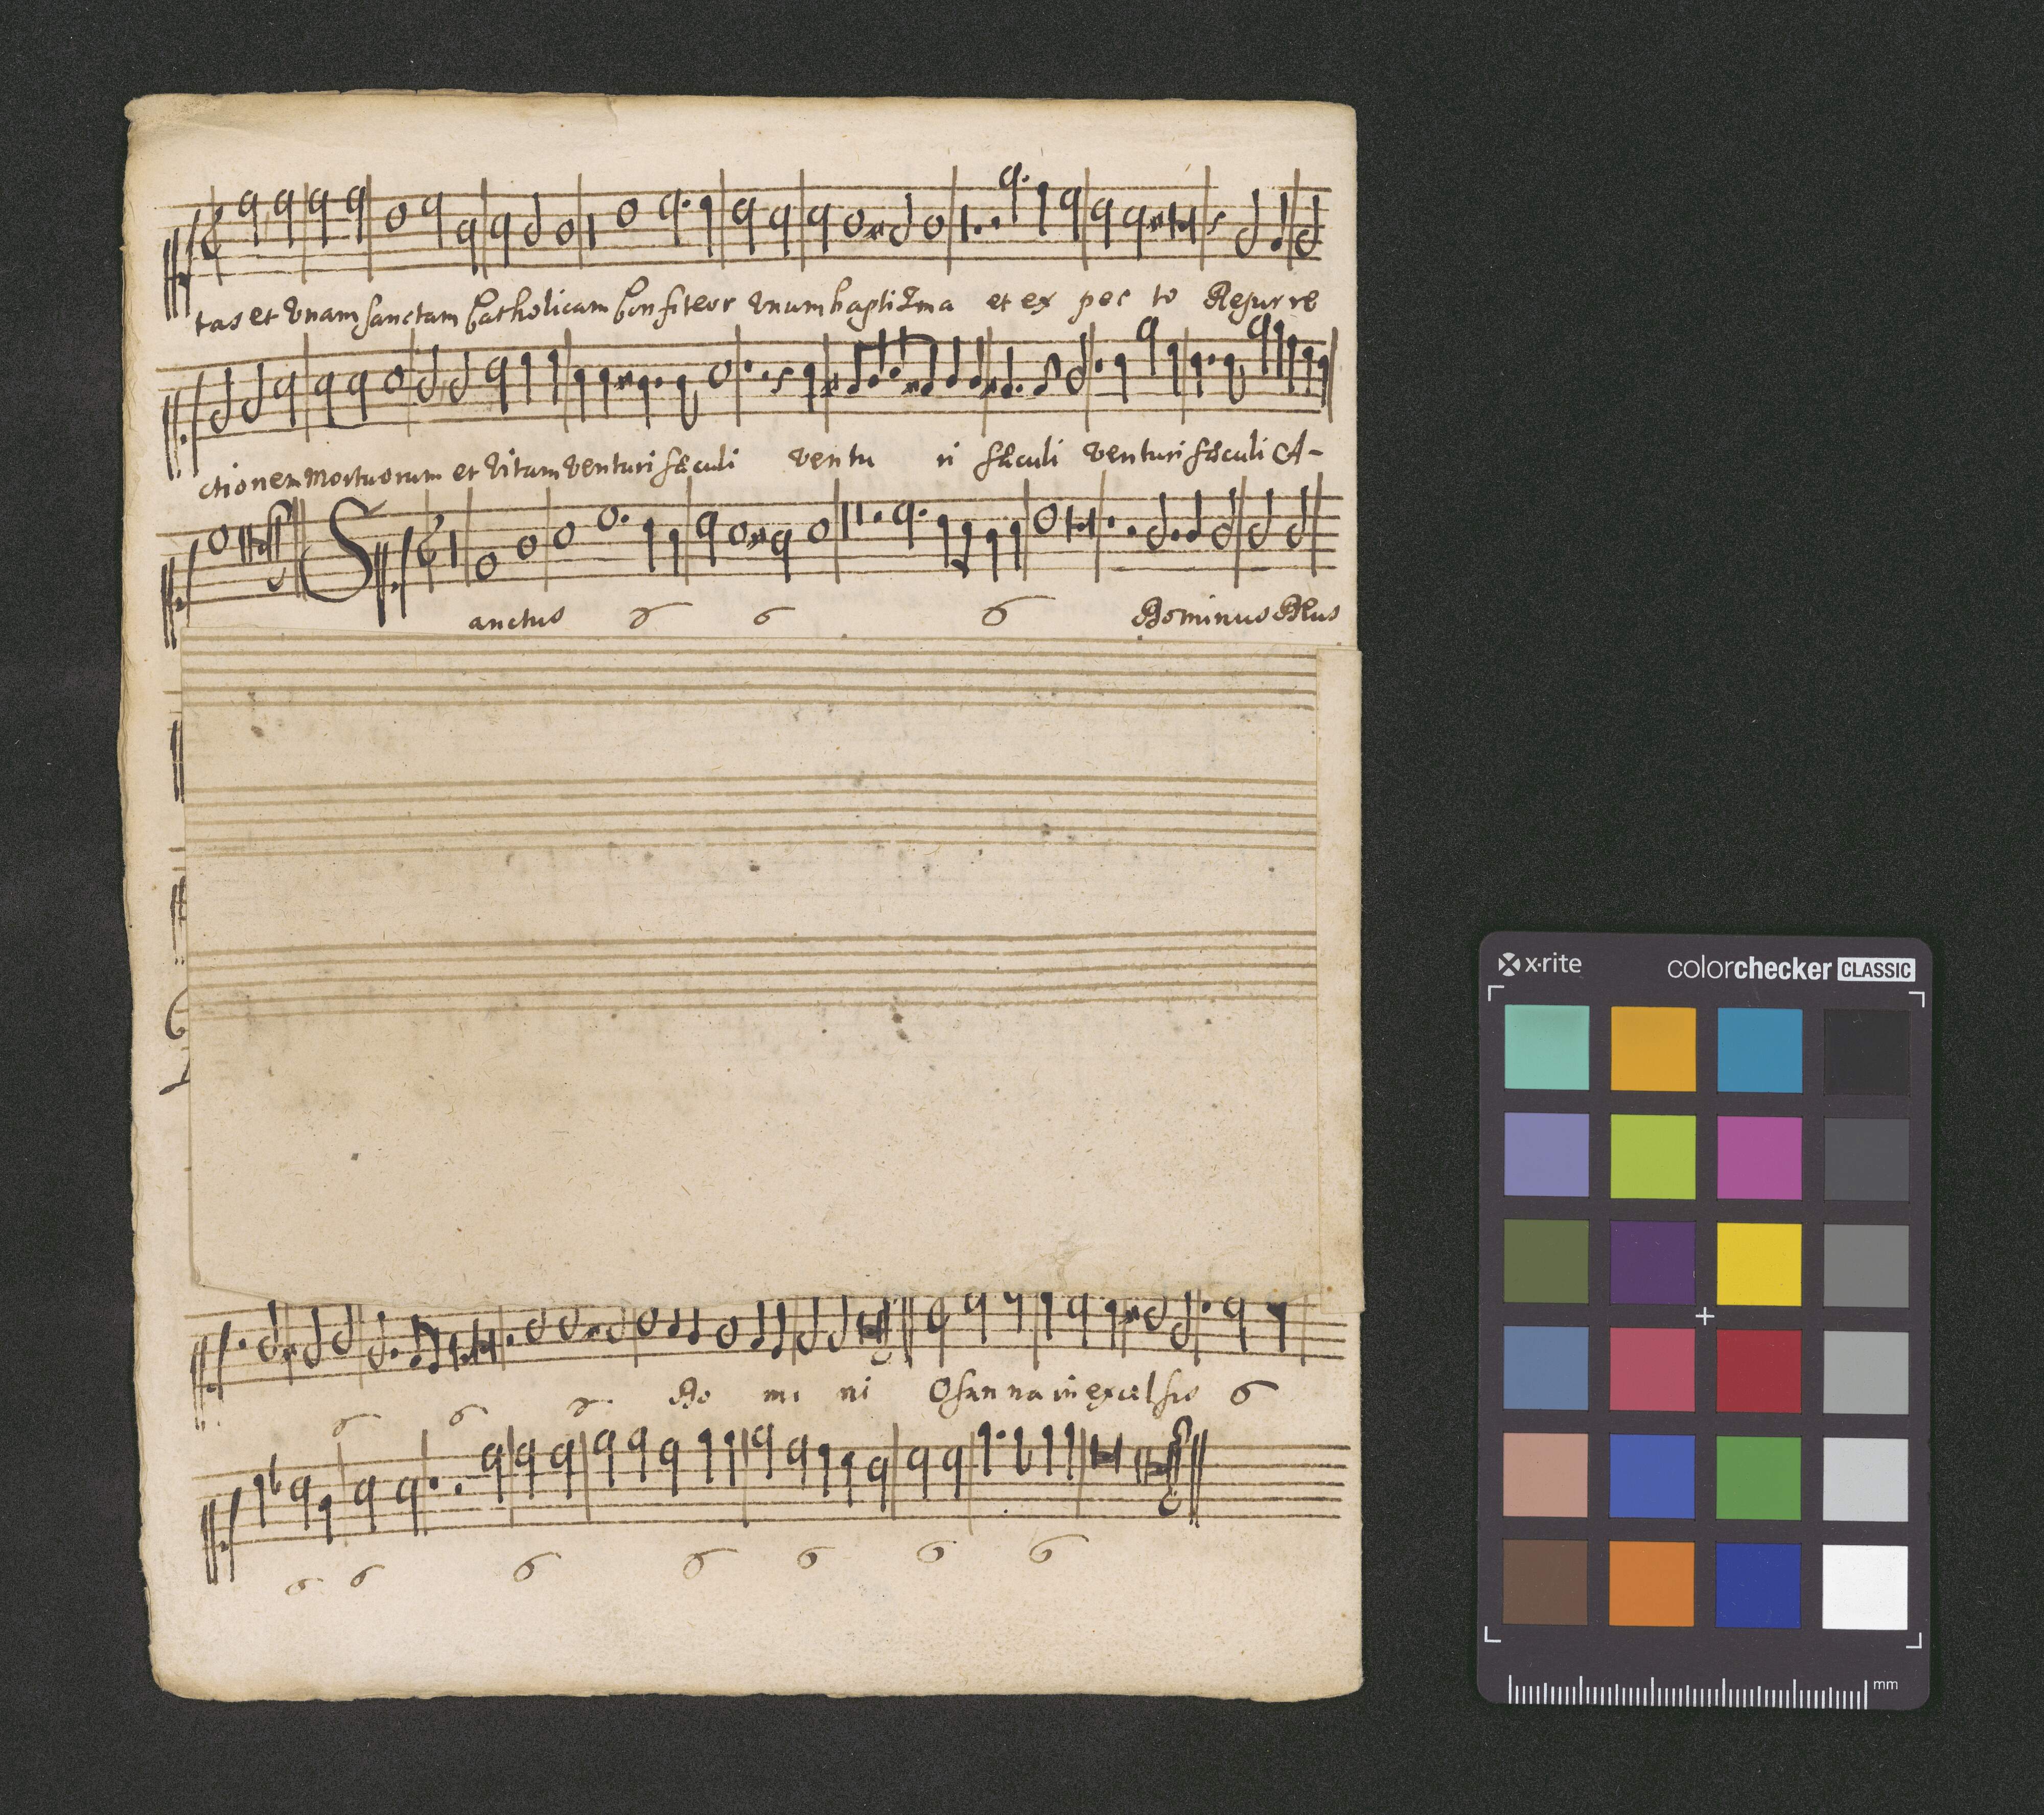 tas et Vnam sanctam Catholicam Confiteor Vnum baptisma et ex pec to Resurre
ctionem Mortuorum et Vitam Venturi sæculi Ventu ri sæculi Venturi sæculi A-
Sanctus Dominus Deus
Do mi ni Osanna in excelsis
x·rite colorchecker CLASSIC
mm